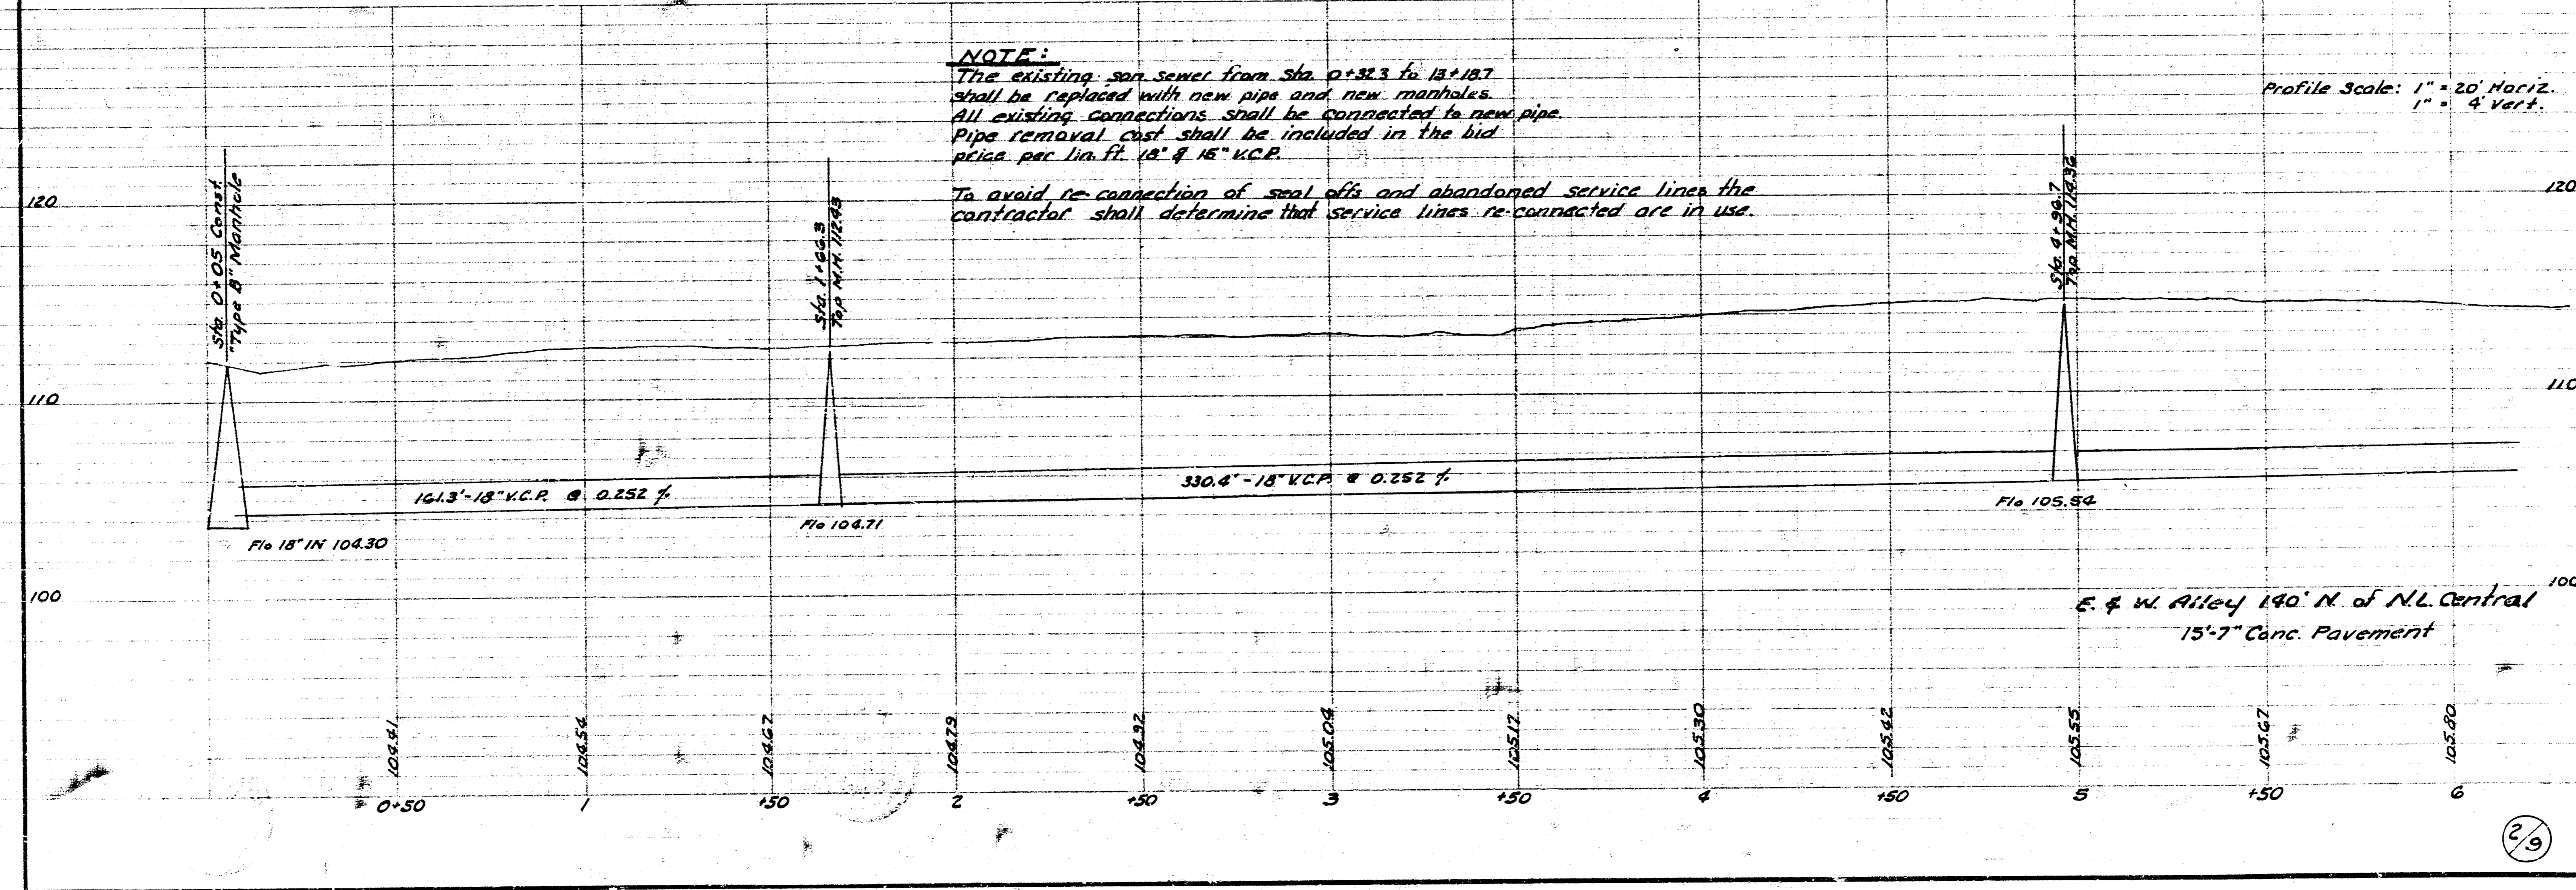 NOTE:
The existing san sewer from Sta. 0+32.3 to 13+18.7
shall be replaced with new pipe and new manholes.
All existing connections shall be connected to new pipe.
Pipe removal cost shall be included in the bid
price per lin. ft. 18" & 15" V.C.P.
To avoid re-connection of seal offs and abandoned service lines the
contractor shall determine that service lines re-connected are in use.
Profile Scale: 1" = 20' Horiz.
1" = 4' Vert.
120
120
Sta. 0+05 Const.
"Type B" Manhole
Sta. 1+66.3
Top M.H. 112.43
Sta. 4+96.7
Top M.H. 114.36
110
110
161.3'-18" V.C.P. @ 0.252 %
330.4'-18" V.C.P. @ 0.252 %
Flo 18" IN 104.30
Flo 104.71
Flo 105.54
100
100
E. & W. Alley 140' N. of N.L. Central
15'-7" Conc. Pavement
104.41
104.54
104.67
104.79
104.92
105.04
105.17
105.30
105.42
105.55
105.67
105.80
0+50
1
+50
2
+50
3
+50
4
+50
5
+50
6
2/9